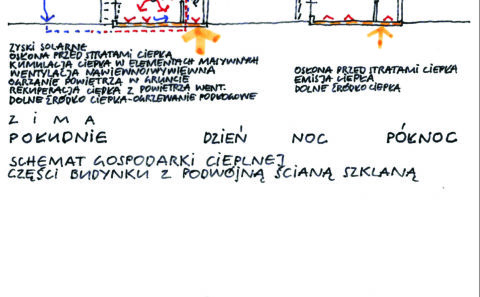 ZYSKI SOLARNE
OSŁONA PRZED STRATAMI CIEPŁA
KUMULACJA CIEPŁA W ELEMENTACH MASYWNYCH
WENTYLACJA NAWIEWNO/WYWIEWNA
OGRZANIE POWIETRZA W GRUNCIE
REKUPERACJA CIEPŁA Z POWIETRZA WENT.
DOLNE ŹRÓDŁO CIEPŁA-OGRZEWANIE PODŁOGOWE
OSŁONA PRZED STRATAMI CIEPŁA
EMISJA CIEPŁA
DOLNE ŹRÓDŁO CIEPŁA
ZIMA
POŁUDNIE DZIEŃ NOC PÓŁNOC
SCHEMAT GOSPODARKI CIEPLNEJ
CZĘŚCI BUDYNKU Z PODWÓJNĄ ŚCIANĄ SZKLANĄ